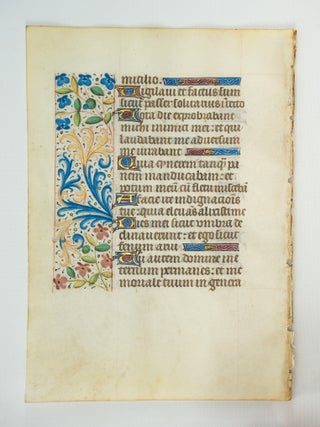 micilio.
Vigilavi et factus sum
sicut passer solitarius i tecto
Tota die exprobrabant
michi inimici mei: et qui
laudabant me adversum
me iurabant
Quia cynerem tanq̃ pa
nem manducabam: et
potum meũ cũ fletu misceba
A facie ire indignacionis
tue: quia elevãs alisisti me
Dies mei sicut umbra de
clinaverunt: et ego sicut
fenum arui
Tu autem domine in
eternum permanes: et me
moriale tuum in genera